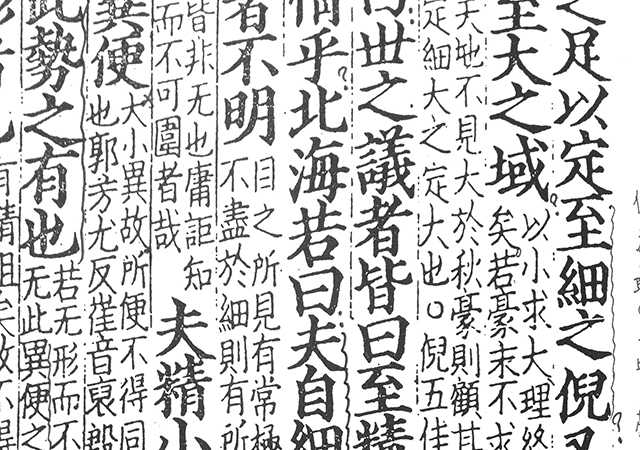 之足以定至細之倪又
至大之域
以小求大理終
矣若豪末不求
天地不見大於秋豪則顧其
定細大之定大也〇倪五佳
世之議者皆曰至精
情乎北海若曰夫自細
者不明
目之所見有常極
不盡於細則有所
皆非无也庸詎知
而不可圍者哉
夫精小
異便
大小異故所便不得同
也郭方尤反崔音裒殷
此勢之有也
若无形而不
无此異便之
有精粗矣故不得